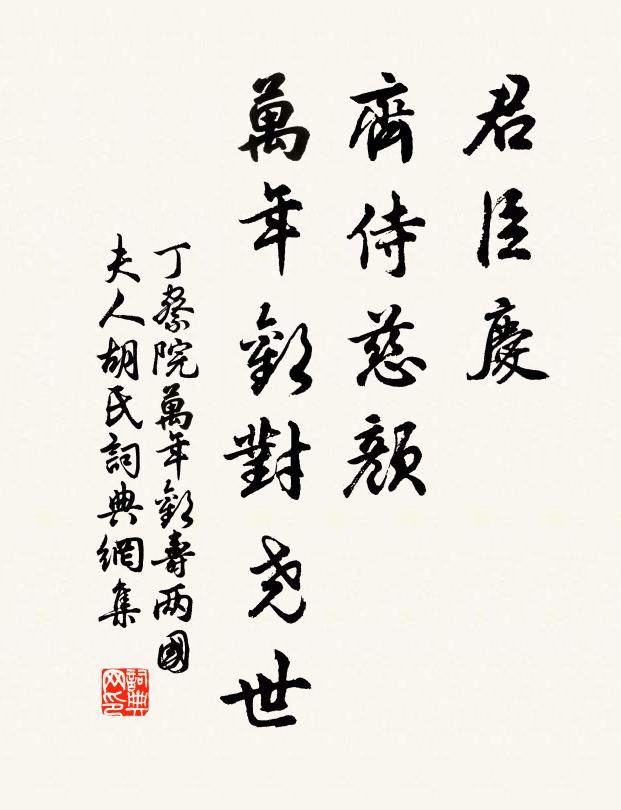 君臣慶
齊侍慈顏
萬年歡對堯世
丁察院萬年歡壽兩國
夫人胡氏詞典網集
詞典网印